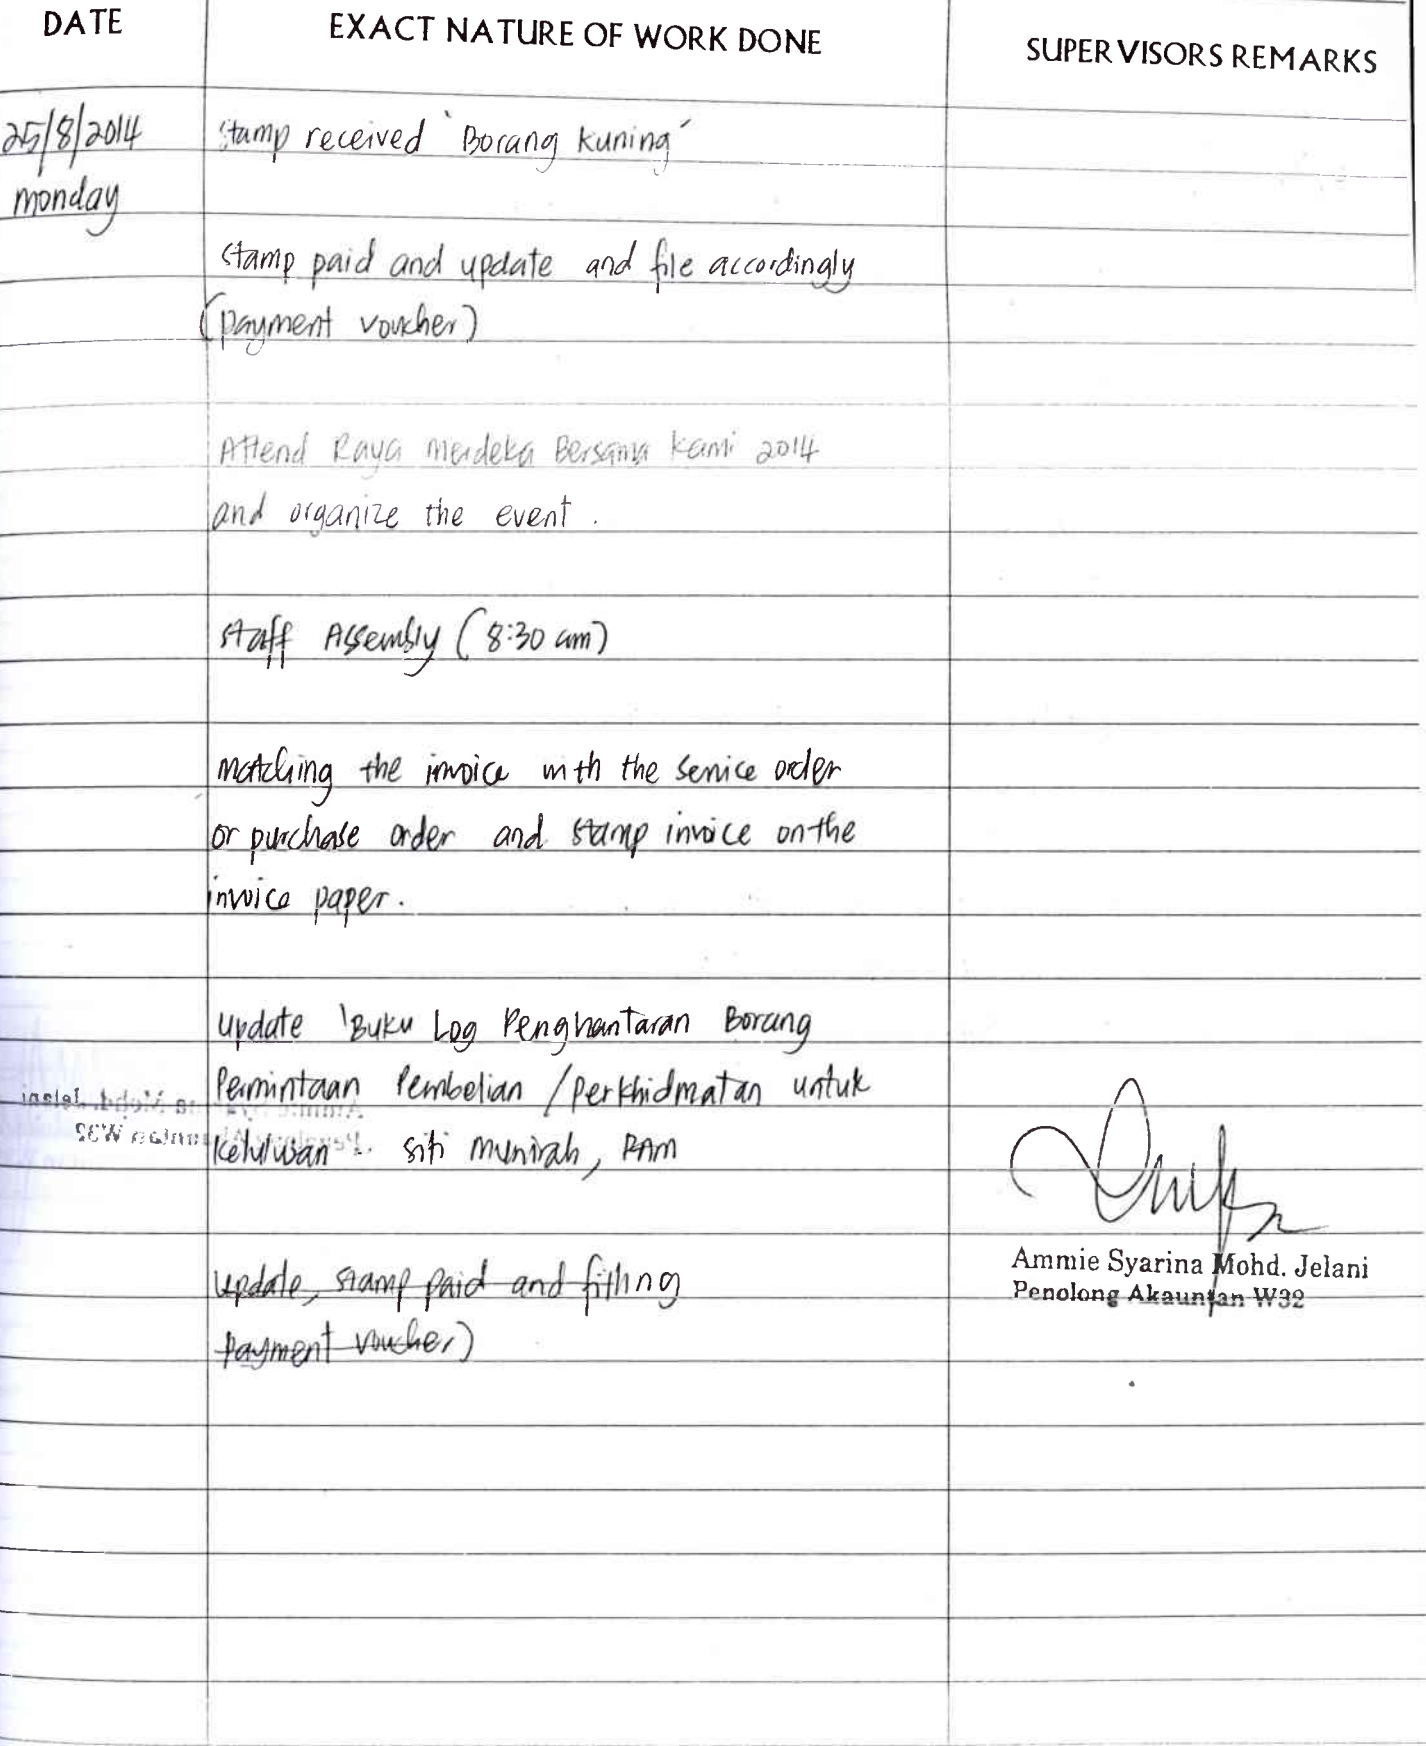 DATE EXACT NATURE OF WORK DONE SUPERVISORS REMARKS
25/8/2014 stamp received 'Borang Kuning'
monday
stamp paid and update and file accordingly
(payment voucher)
Attend Raya Merdeka Bersama Kami 2014
and organize the event.
Staff Assembly (8:30 am)
matching the invoice with the service order
or purchase order and stamp invoice on the
invoice paper.
update 'Buku Log Penghantaran Borang
Permintaan Pembelian / Perkhidmatan untuk
Kelulusan'. siti munirah, PAM
update, stamp paid and filling
payment voucher)
Ammie Syarina Mohd. Jelani
Penolong Akauntan W32